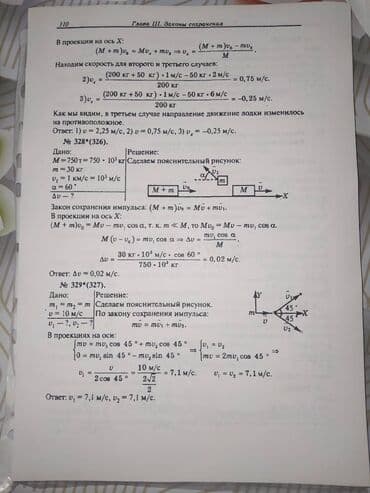 110 Глава III. Законы сохранения
В проекции на ось X:
(M + m)v₀ = Mvₓ + mv₆ ⇒ vₓ = ((M + m)v₀ − mv₆)/M
Находим скорость для второго и третьего случаев:
2) vₓ = ((200 кг + 50 кг) · 1 м/с − 50 кг · 2 м/с)/200 кг = 0,75 м/с.
3) vₓ = ((200 кг + 50 кг) · 1 м/с − 50 кг · 6 м/с)/200 кг = −0,25 м/с.
Как мы видим, в третьем случае направление движение лодки изменилось
на противоположное.
Ответ: 1) v = 2,25 м/с, 2) v = 0,75 м/с, 3) vₓ = −0,25 м/с.
№ 328*(326).
Дано: Решение:
M = 750 т = 750 · 10³ кг Сделаем пояснительный рисунок:
m = 30 кг
v₁ = 1 км/с = 10³ м/с
α = 60°
Δv − ?
α v₁ m
M + m v₀ M v X
Закон сохранения импульса: (M + m)v₀ = Mv + mv₁.
В проекции на ось X:
(M + m)v₀ = Mv − mv₁ cos α, т. к. m ≪ M, то Mv₀ = Mv − mv₁ cos α
M(v − v₀) = mv₁ cos α ⇒ Δv = (mv₁ cos α)/M.
Δv = (30 кг · 10³ м/с · cos 60°)/(750 · 10³ кг) = 0,02 м/с.
Ответ: Δv = 0,02 м/с.
№ 329*(327).
Дано: Решение:
m₁ = m₂ = m Сделаем пояснительный рисунок.
v = 10 м/с По закону сохранения импульса:
v₁ − ?, v₂ − ? mv = mv₁ + mv₂.
Y v₁ m 45° v 45° X v₂
В проекциях на оси:
{mv = mv₁ cos 45° + mv₂ cos 45°
0 = mv₁ sin 45° − mv₂ sin 45° ⇒ {v₁ = v₂
mv = 2mv₁ cos 45° ⇒
v₁ = v/(2 cos 45°) = (10 м/с)/(2√2/2) = 7,1 м/с. v₁ = v₂ = 7,1 м/с.
Ответ: v₁ = 7,1 м/с, v₂ = 7,1 м/с.